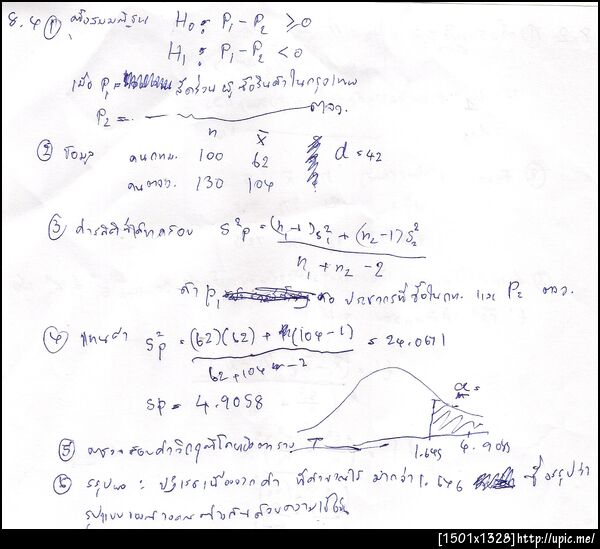 8.4 ① ตั้งสมมติฐาน H₀ : P₁ - P₂ ≥ 0
H₁ : P₁ - P₂ < 0
เมื่อ P₁ = สัดส่วน ผู้ซื้อสินค้าในกรุงเทพ
P₂ = ตจว.
n x̄
② ข้อมูล คนกทม. 100 62 d = 42
คนตจว. 130 104
③ ค่าสถิติที่ใช้ทดสอบ S²p = (n₁-1)s₁² + (n₂-1)S₂²
n₁ + n₂ - 2
ค่า P₁ คือ ประชากรที่ซื้อใน กท. และ P₂ ตจว.
④ แทนค่า Sp² = (62)(62) + (104-1) = 24.0671
62+104-2
Sp = 4.9058
1.645
⑤
⑥ สรุปผล : ปฏิเสธเนื่องจากค่า ที่คำนวณได้ มากกว่า 1.646 ซึ่งสรุปว่า
[1501x1328]http://upic.me/